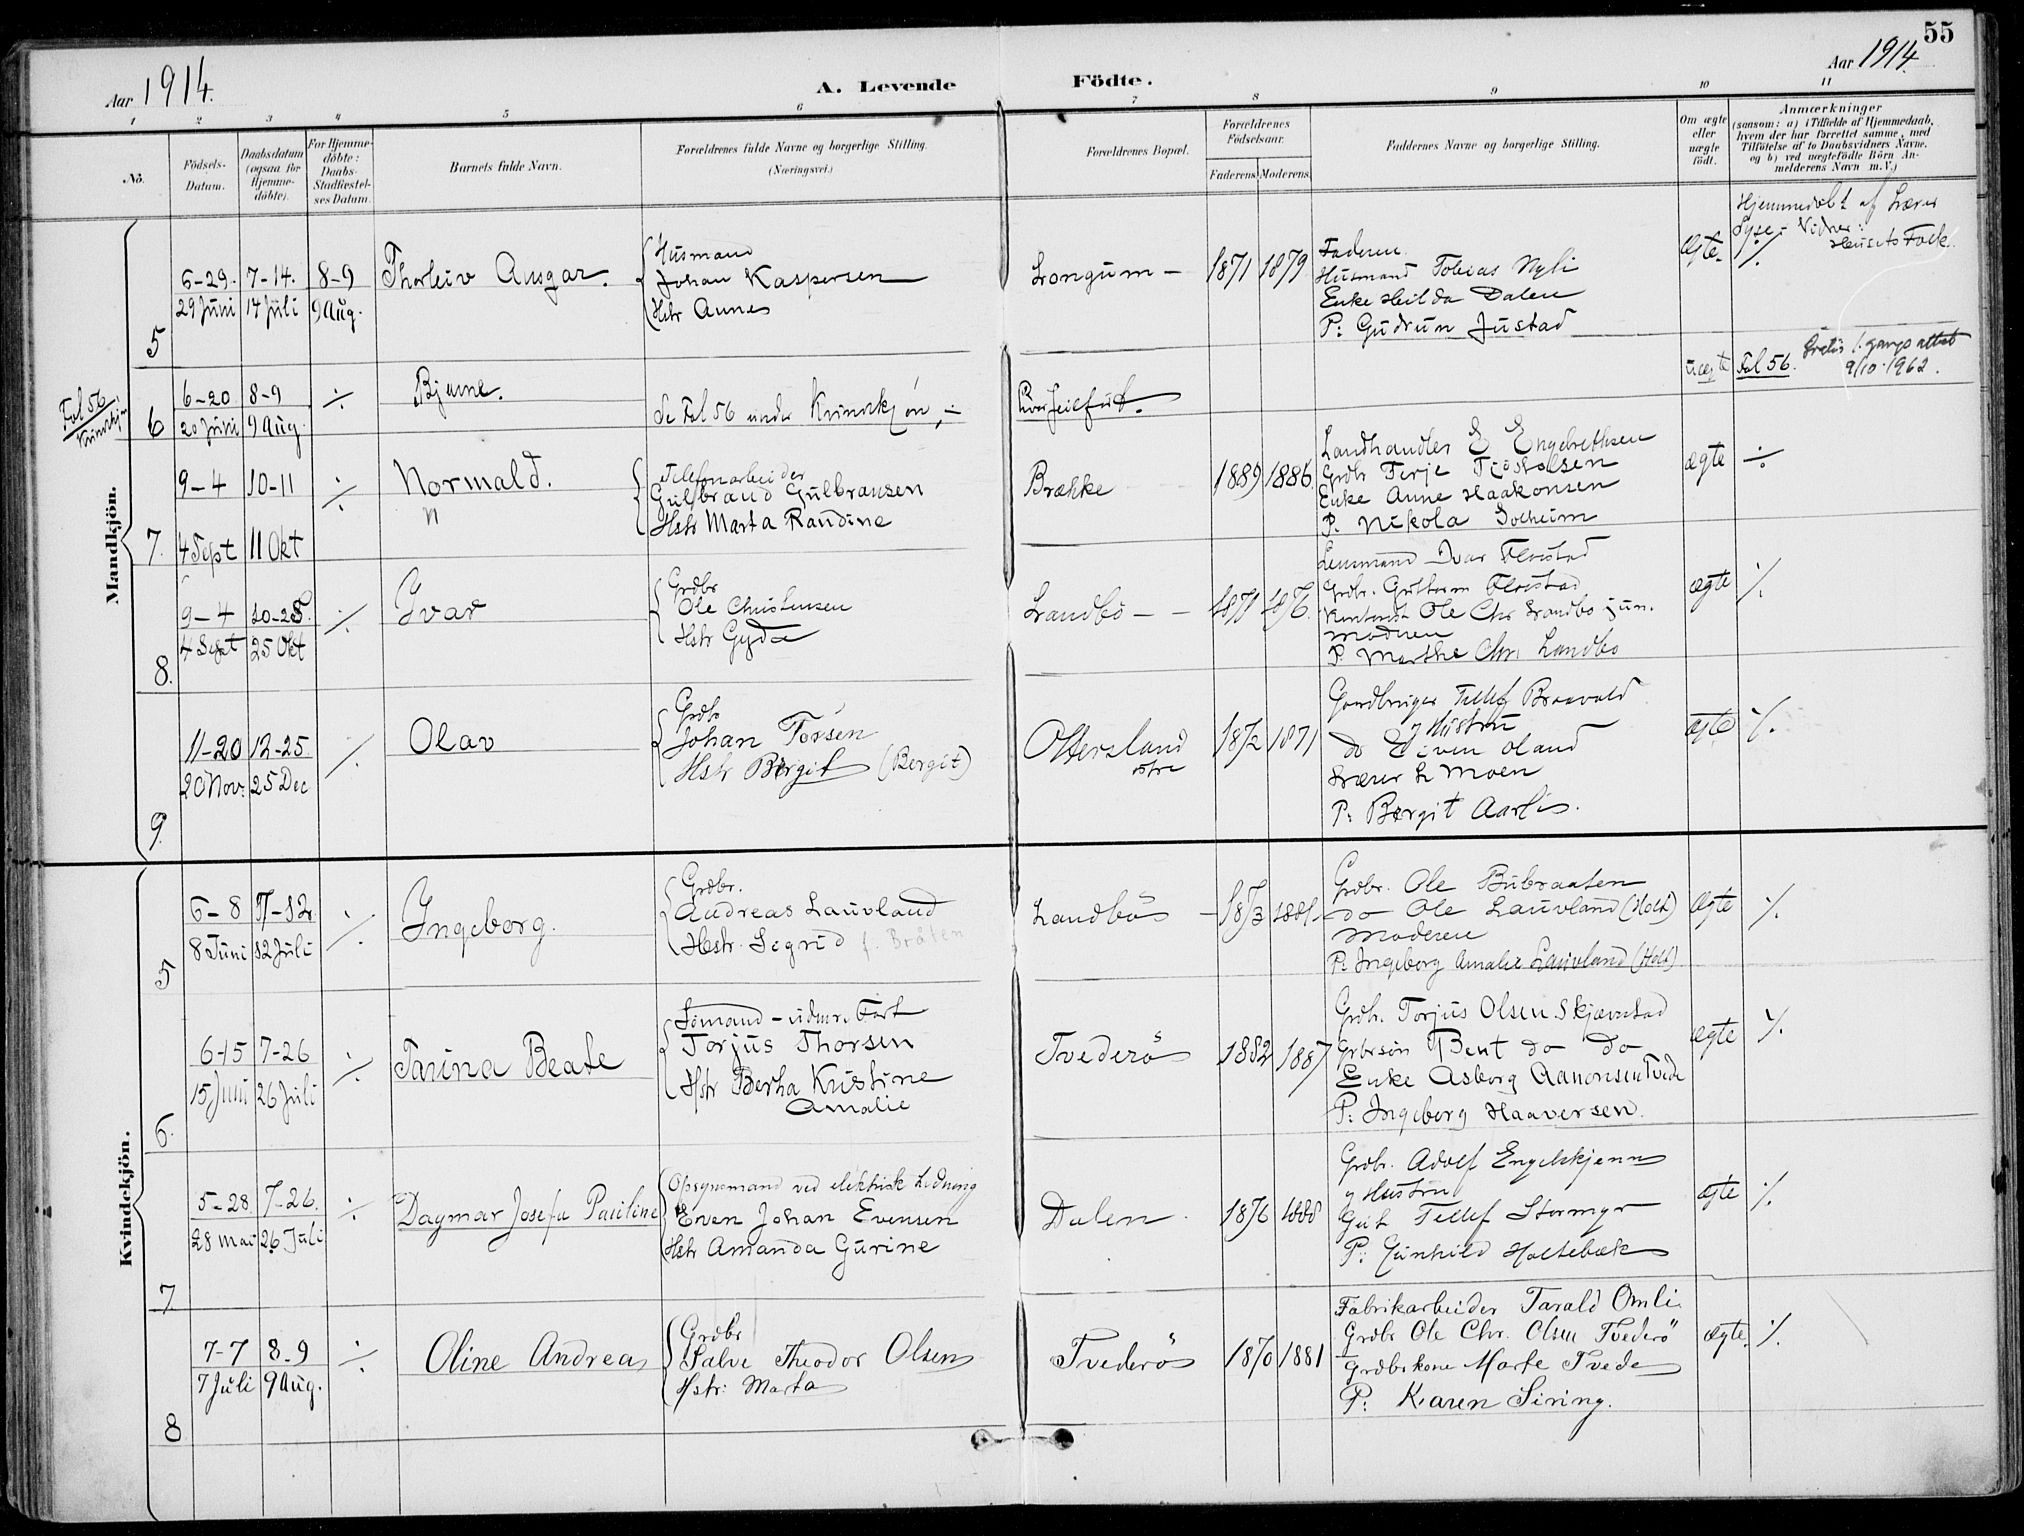 55
Aar 1914.
A. Levende Födte.
Aar 1914.
1 2 3 4 5 6 7 8 9 10 11
No.
Födsels-
Datum.
Daabsdatum
(ogsaa for
Hjemme-
döbte).
For Hjemme-
döbte:
Daabs-
Stadfæstel-
ses Datum.
Barnets fulde Navn.
Forældrenes fulde Navne og borgerlige Stilling.
(Næringsvei.)
Forældrenes Bopæl.
Forældrenes
Födselsaar.
Faderens Moderens
Faddernes Navne og borgerlige Stilling.
Om ægte
eller
uægte
födt.
Anmærkninger
(saasom: a) i Tilfælde af Hjemmedaab,
hvem der har forrettet samme, med
Tilföielse af to Daabsvidners Navne,
og b) ved uægtefödte Börn An-
melderens Navn m. V.)
Mandkjön.
5
6-29. 7-14. 8-9
29 Juni 14 Juli 9 Aug.
Thorleiv Ansgar.
Husmand
Johan Kaspersen
Hstr Anne
Longum -
1871 1879
Faderen
Husmand Tobias Nyli
Enke Hilda Dalen
P: Gudrun Justad
Ægte.
Hjemmedøbt af Lærer
Syse - Vidner:
Husets Folk.
%
Fol 56
Kvindkjn
6
6-20 8-9 ÷
20 Juni 9 Aug.
Bjarne.
Se Fol 56 under Kvindekjøn, -
hvor feilført.
uægte
Fol 56.
1. gangs attest
9/10-1962.
7.
9-4 10-11 ÷
4 Sept 11 Okt
Normald.
n
Telefonarbeider
Gulbrand Gulbransen
Hstr Marta Randine
Brække
1889 1886.
Landhandler E Engebrethsen
Grdbr Terje Tjøstolsen
Enke Anne Haakonsen
P. Nikola Solheim
ægte ÷
8.
9-4 10-25. %
4 Sept 25 Okt
Ivar
Grdbr
Ole Christensen
Hstr Gyda
Landbö - -
1871 1876.
Lensmand Ivar Flostad
Grdbr. Guttorm Flostad
Ole Chr Landbo jun.
Moderen
P. Marthe Chr. Landbo
ægte %
9.
11-20 12-25. %
20 Nov. 25 Dec
Olav
Grdbr
Johan Torsen
Hstr Birgit (Bergit)
Ottersland
östre
1872 1871
Gaardbruger Tellef Braavold
& Hustru
do Even Oland
Lærer L Moen
P: Bergit Aarlis.
ægte %
Kvindekjön.
5
6-8 7-12 %
8 Juni 12 Juli
Ingeborg.
Grdbr.
Andreas Lauvland
Hstr. Segrid f. Bråten
Landbö -
1873 1881
Grdbr. Ole Bubraaten
do Ole Lauvland (Holt)
Moderen
P. Ingeborg Amalie Lauvland (Holt)
Ægte %
6.
6-15 7-26 ÷
15 Juni 26 Juli
Tarina Beate
Sømand - udenr. Fart
Torjus Thorsen
Hstr Bertha Kristine
Amalie
Tvederö
1882 1887
Grdbr. Torjus Olsen Skjævstad
Grbrsön Bent do do
Enke Asborg Aanonsen Tvede
P: Ingeborg Haaversen.
ægte %
7
5-28. 7-26. ÷
28 Mai 26 Juli
Dagmar Josefa Pauline
Opsynsmand ved elektrisk Ledning
Even Johan Evensen
Hstr Amanda Gurine
Dalen
1876 1888
Grdbr. Adolf Engelskjenn
& Hustru
Gut Tellef Stormyr
P: Gunhild Holtebæk
ægte %
8
7-7 8-9 ÷
7 Juli 9 Aug.
Oline Andrea
Grdbr
Salve Theodor Olsen
Hstr: Marta
Tvederö
1870 1881
Fabrikarbeider Tarald Omli
Grdbr Ole Chr. Olsen Tvederö
Grdbrkone Marte Tvede
P: Karen Siring.
ægte. %